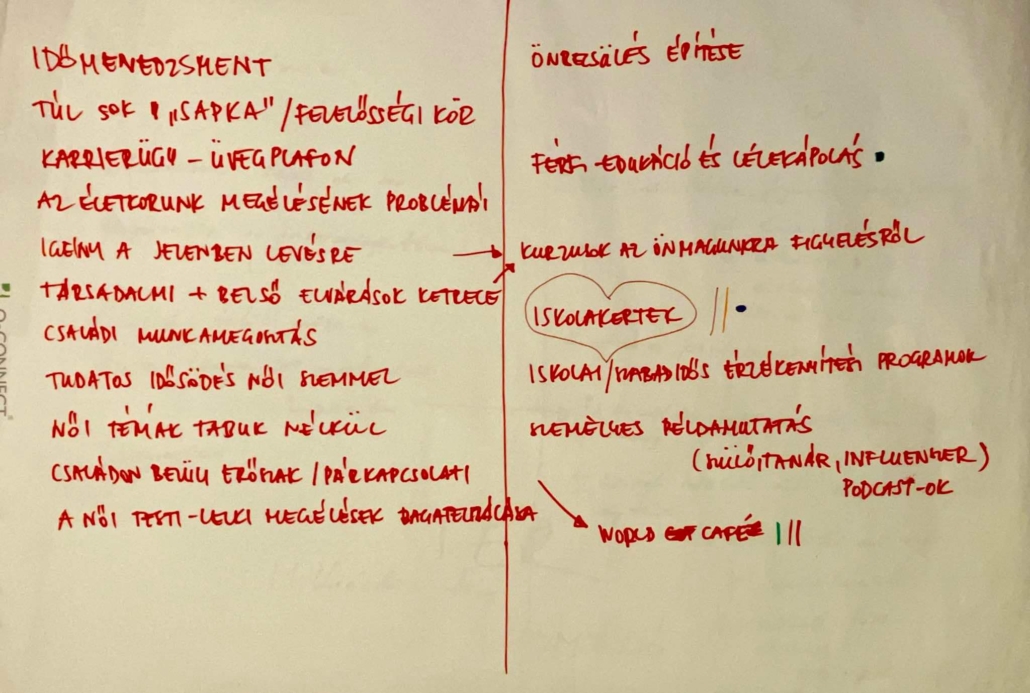 IDŐMENEDZSMENT
TÚL SOK "SAPKA" / FELELŐSSÉGI KÖR
KARRIERÜGY – ÜVEGPLAFON
AZ ÉLETKORUNK MEGÉLÉSÉNEK PROBLÉMÁI
IGÉNY A JELENBEN LEVÉSRE
TÁRSADALMI + BELSŐ ELVÁRÁSOK KETRECE
CSALÁDI MUNKAMEGOSZTÁS
TUDATOS IDŐSÖDÉS NŐI SZEMMEL
NŐI TÉMÁK TABUK NÉLKÜL
CSALÁDON BELÜLI ERŐSZAK / PÁRKAPCSOLATI
A NŐI TESTI-LELKI MEGÉLÉSEK BAGATELIZÁLÁSA
ÖNBECSÜLÉS ÉPÍTÉSE
FÉRFI EDUKÁCIÓ ÉS LÉLEKÁPOLÁS
KURZUSOK AZ ÖNMAGUNKRA FIGYELÉSRŐL
ISKOLAKERTEK
ISKOLAI / SZABADIDŐS ÉRZÉKENYÍTÉSI PROGRAMOK
SZEMÉLYES PÉLDAMUTATÁS
(SZÜLŐ, TANÁR, INFLUENSZER)
PODCAST-OK
WORLD CAFÉ
Q-CONNECT